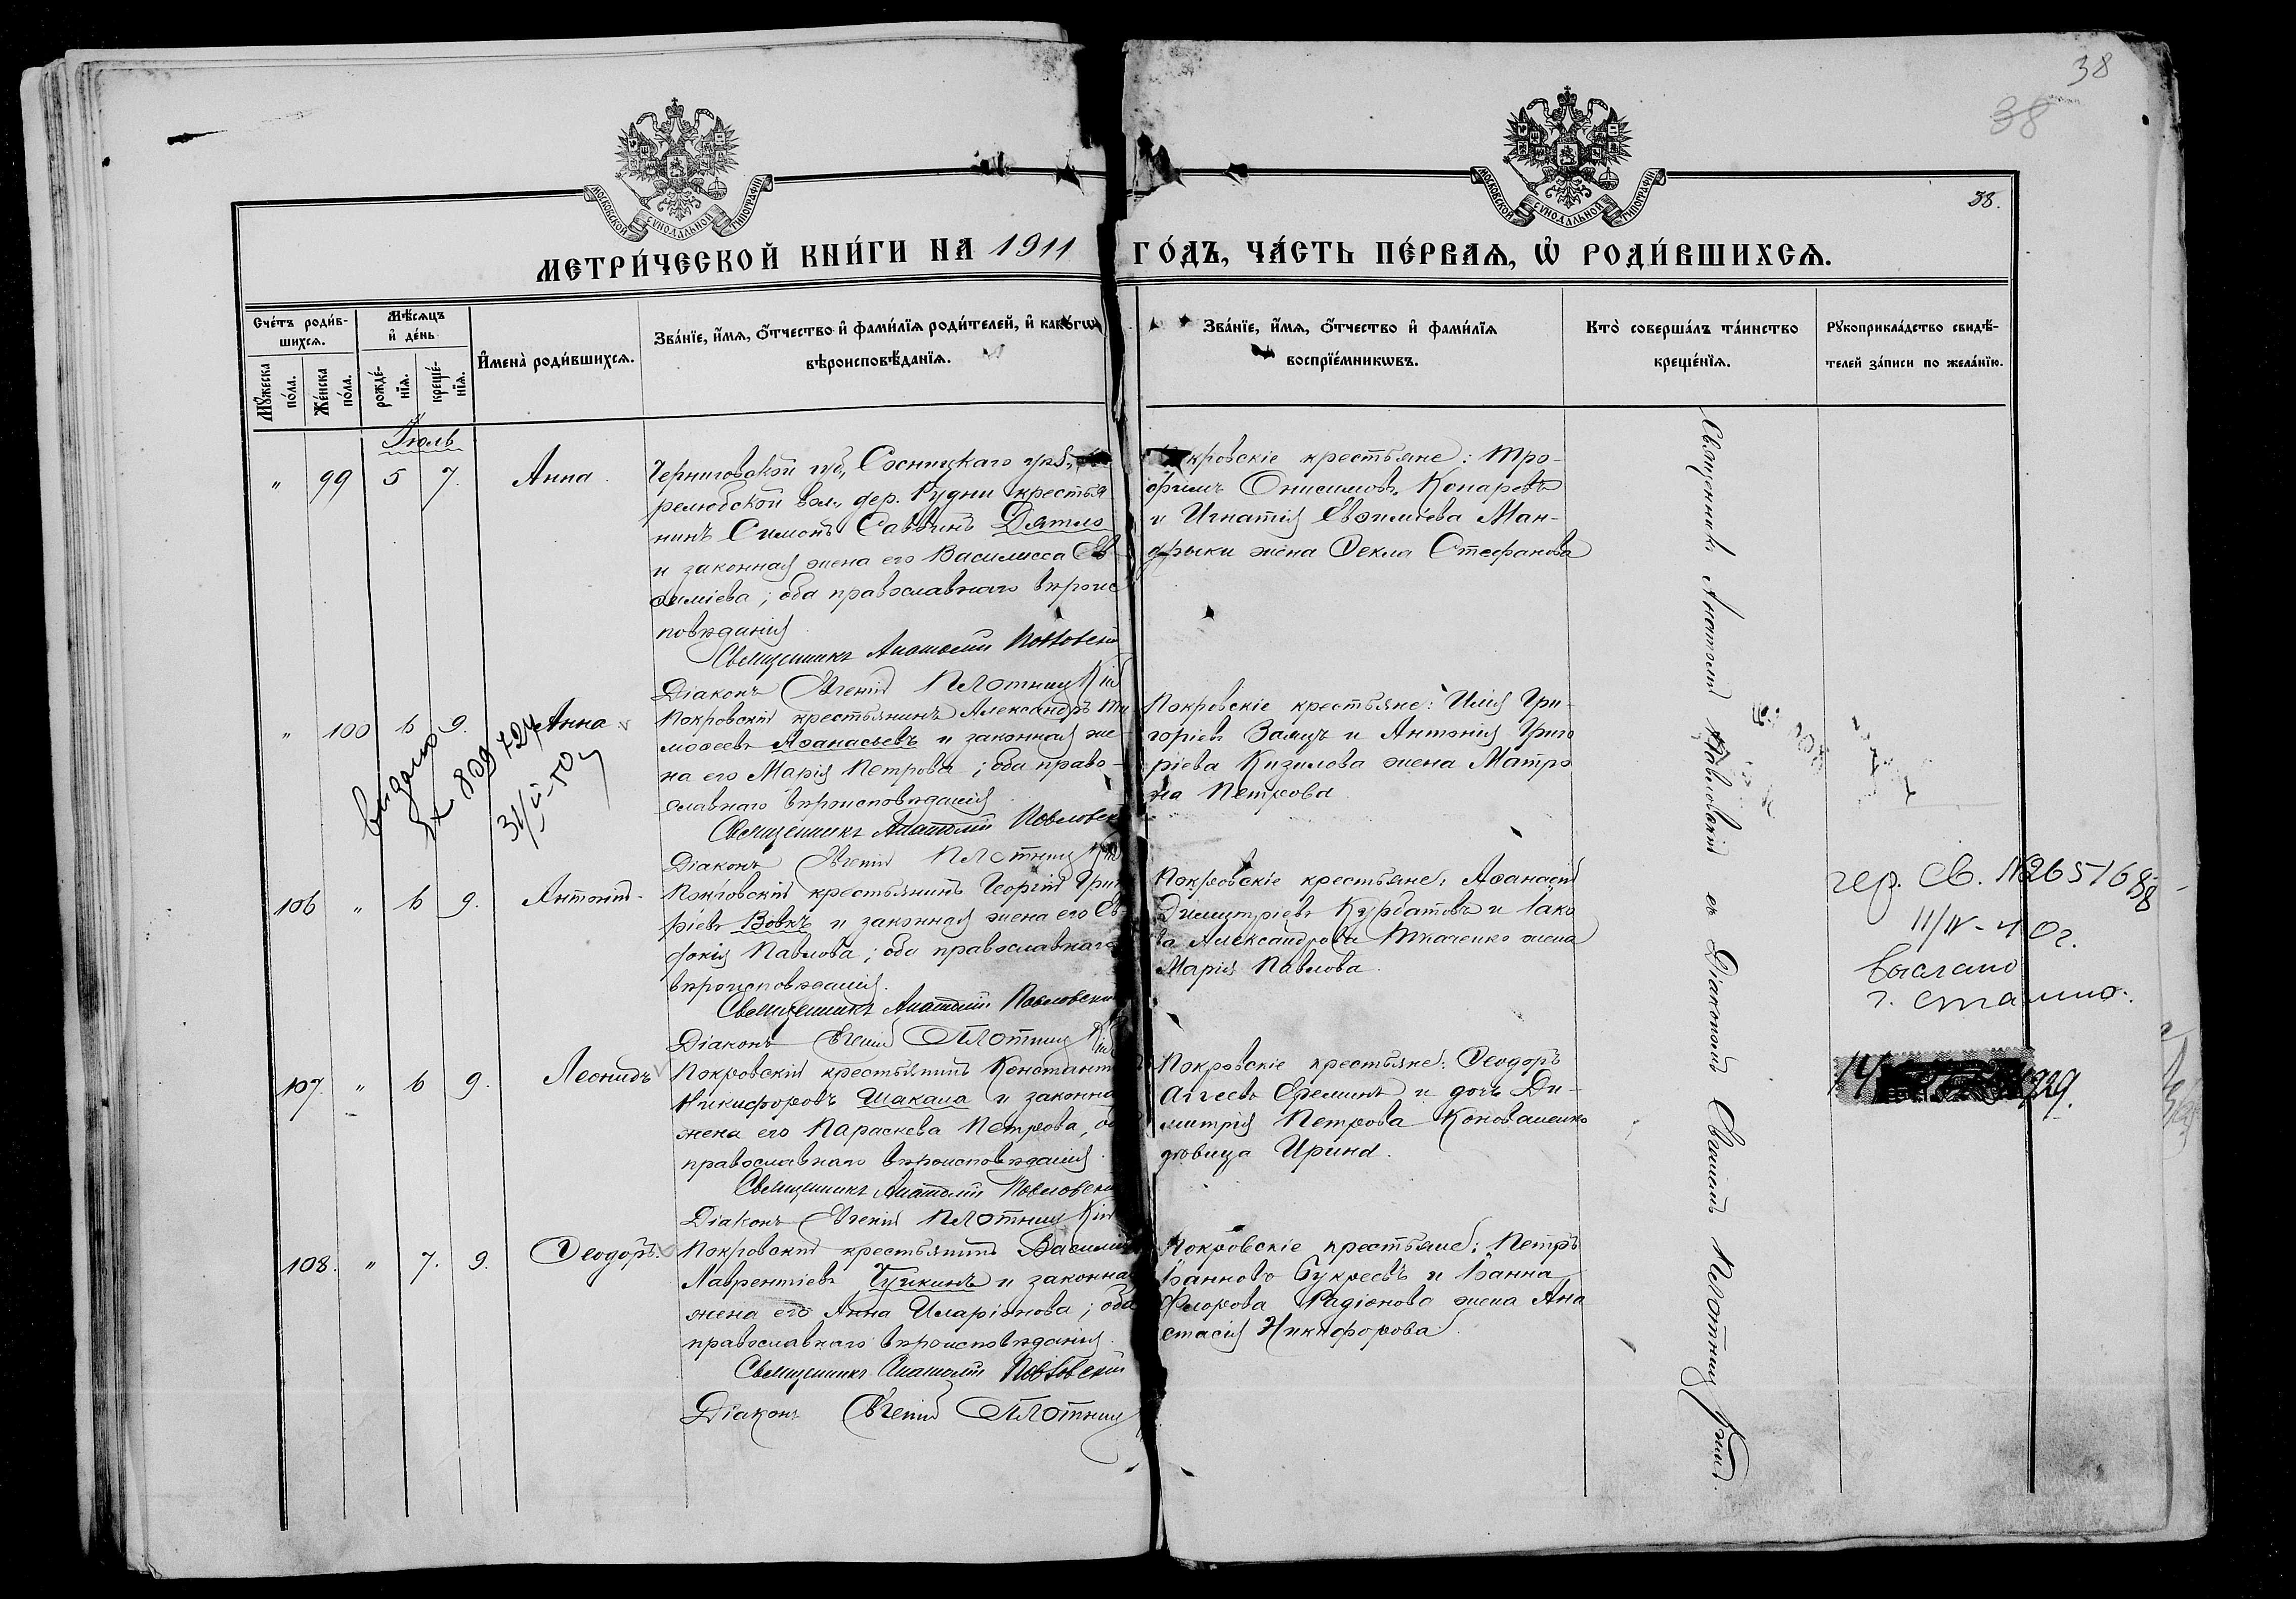 38
38
38.
МОСКОВСКОЙ СУНОДАЛЬНОЙ ТИПОГРАФІИ
МОСКОВСКОЙ СУНОДАЛЬНОЙ ТИПОГРАФІИ
МЕТРИ́ЧЕСКОЙ КНИ́ГИ НА 1911 ГО́ДЪ, ЧА́СТЬ ПЕ́РВАѦ, Ѡ҆ РОДИ́ВШИХСѦ.
Сче́тъ роди́в-
шихсѧ.
Мѣ́сѧцъ
и҆ де́нь
Мꙋ́жеска
по́ла.
Же́нска
по́ла.
рожде́-
нїѧ.
креще́-
нїѧ.
И҆мена̀ роди́вшихсѧ.
Зва́нїе, и҆́мѧ, ѻ҆́тчество и҆ фами́лїѧ роди́телей, и҆ како́гѡ
вѣроисповѣ́данїѧ.
Зва́нїе, и҆́мѧ, ѻ҆́тчество и҆ фами́лїѧ
воспрїе́мникѡвъ.
Кто̀ соверша́лъ та́инство
креще́нїѧ.
Рꙋкоприкла́дство свидѣ́-
телей за́писи по жела́нїю.
Іюль
" 99 5 7. Анна.
Черниговской губ., Сосницкаго уѣз.,
релюбской вол., дер. Рудни крестья
нинъ Симонъ Саввинъ Дятло
и законная жена его Василисса Ев
ѳиміева; оба православнаго вѣроис
повѣданія.
Священникъ Анатолій Павловскій
Діаконъ Евгеній Плотницкій
кровскіе крестьяне: Тро-
фимъ Онисимовъ Копаревъ
и Игнатія Евѳиміева Ман-
дрыки жена Ѳекла Стефанова
" 100 6 9. Анна
Покровскій крестьянинъ Александръ Ти
моѳеевъ Аѳанасьевъ и законная же-
на его Марія Петрова; оба право-
славнаго вѣроисповѣданія.
Священникъ Анатолій Павловск
Діаконъ Евгеній Плотницкій
Покровскіе крестьяне: Илія Гри-
горіевъ Заяцъ и Антонія Григо
ріева Кизилова жена Матро
на Петрова.
выдано
809724
31/
106 " 6 9. Антоній.
Покровскій крестьянинъ Георгій Григо
ріевъ Вовкъ и законная жена его Ев-
докія Павлова; оба православнаго
вѣроисповѣданія.
Священникъ Анатолій Павловскій
Діаконъ Евгеній Плотницкій
Покровскіе крестьяне: Аѳанасій
Димитріевъ Курбатовъ и Іако
ва Александрова Ткаченко жена
Марія Павлова.
гер. св. №
11/IV-40г.
выслано
г. сталино.
107. " 6 9. Леонидъ
Покровскій крестьянинъ Константи
Никифоровъ Шакала и законна
жена его Параскева Петрова, об
православнаго вѣроисповѣданія.
Священникъ Анатолій Павловскій
Діаконъ Евгеній Плотницкій
Покровскіе крестьяне: Ѳеодоръ
Аггеевъ Ереминъ и дочь Ди-
митрія Петрова Коноваленко
дѣвица Ирина.
108. " 7. 9. Ѳеодоръ.
Покровскій крестьянинъ Василій
Лаврентіевъ и законна
жена его Анна Иларіонова; оба
православнаго вѣроисповѣданія.
Священникъ Анатолій Павловскій
Діаконъ Евгеній Плотниц
Покровскіе крестьяне: Петръ
Іанновъ и Іанна
Флорова Радіонова жена Ана
стасія Никифорова.
Священникъ Анатолій Павловскій съ Діакономъ Евгеніемъ Плотницкимъ.